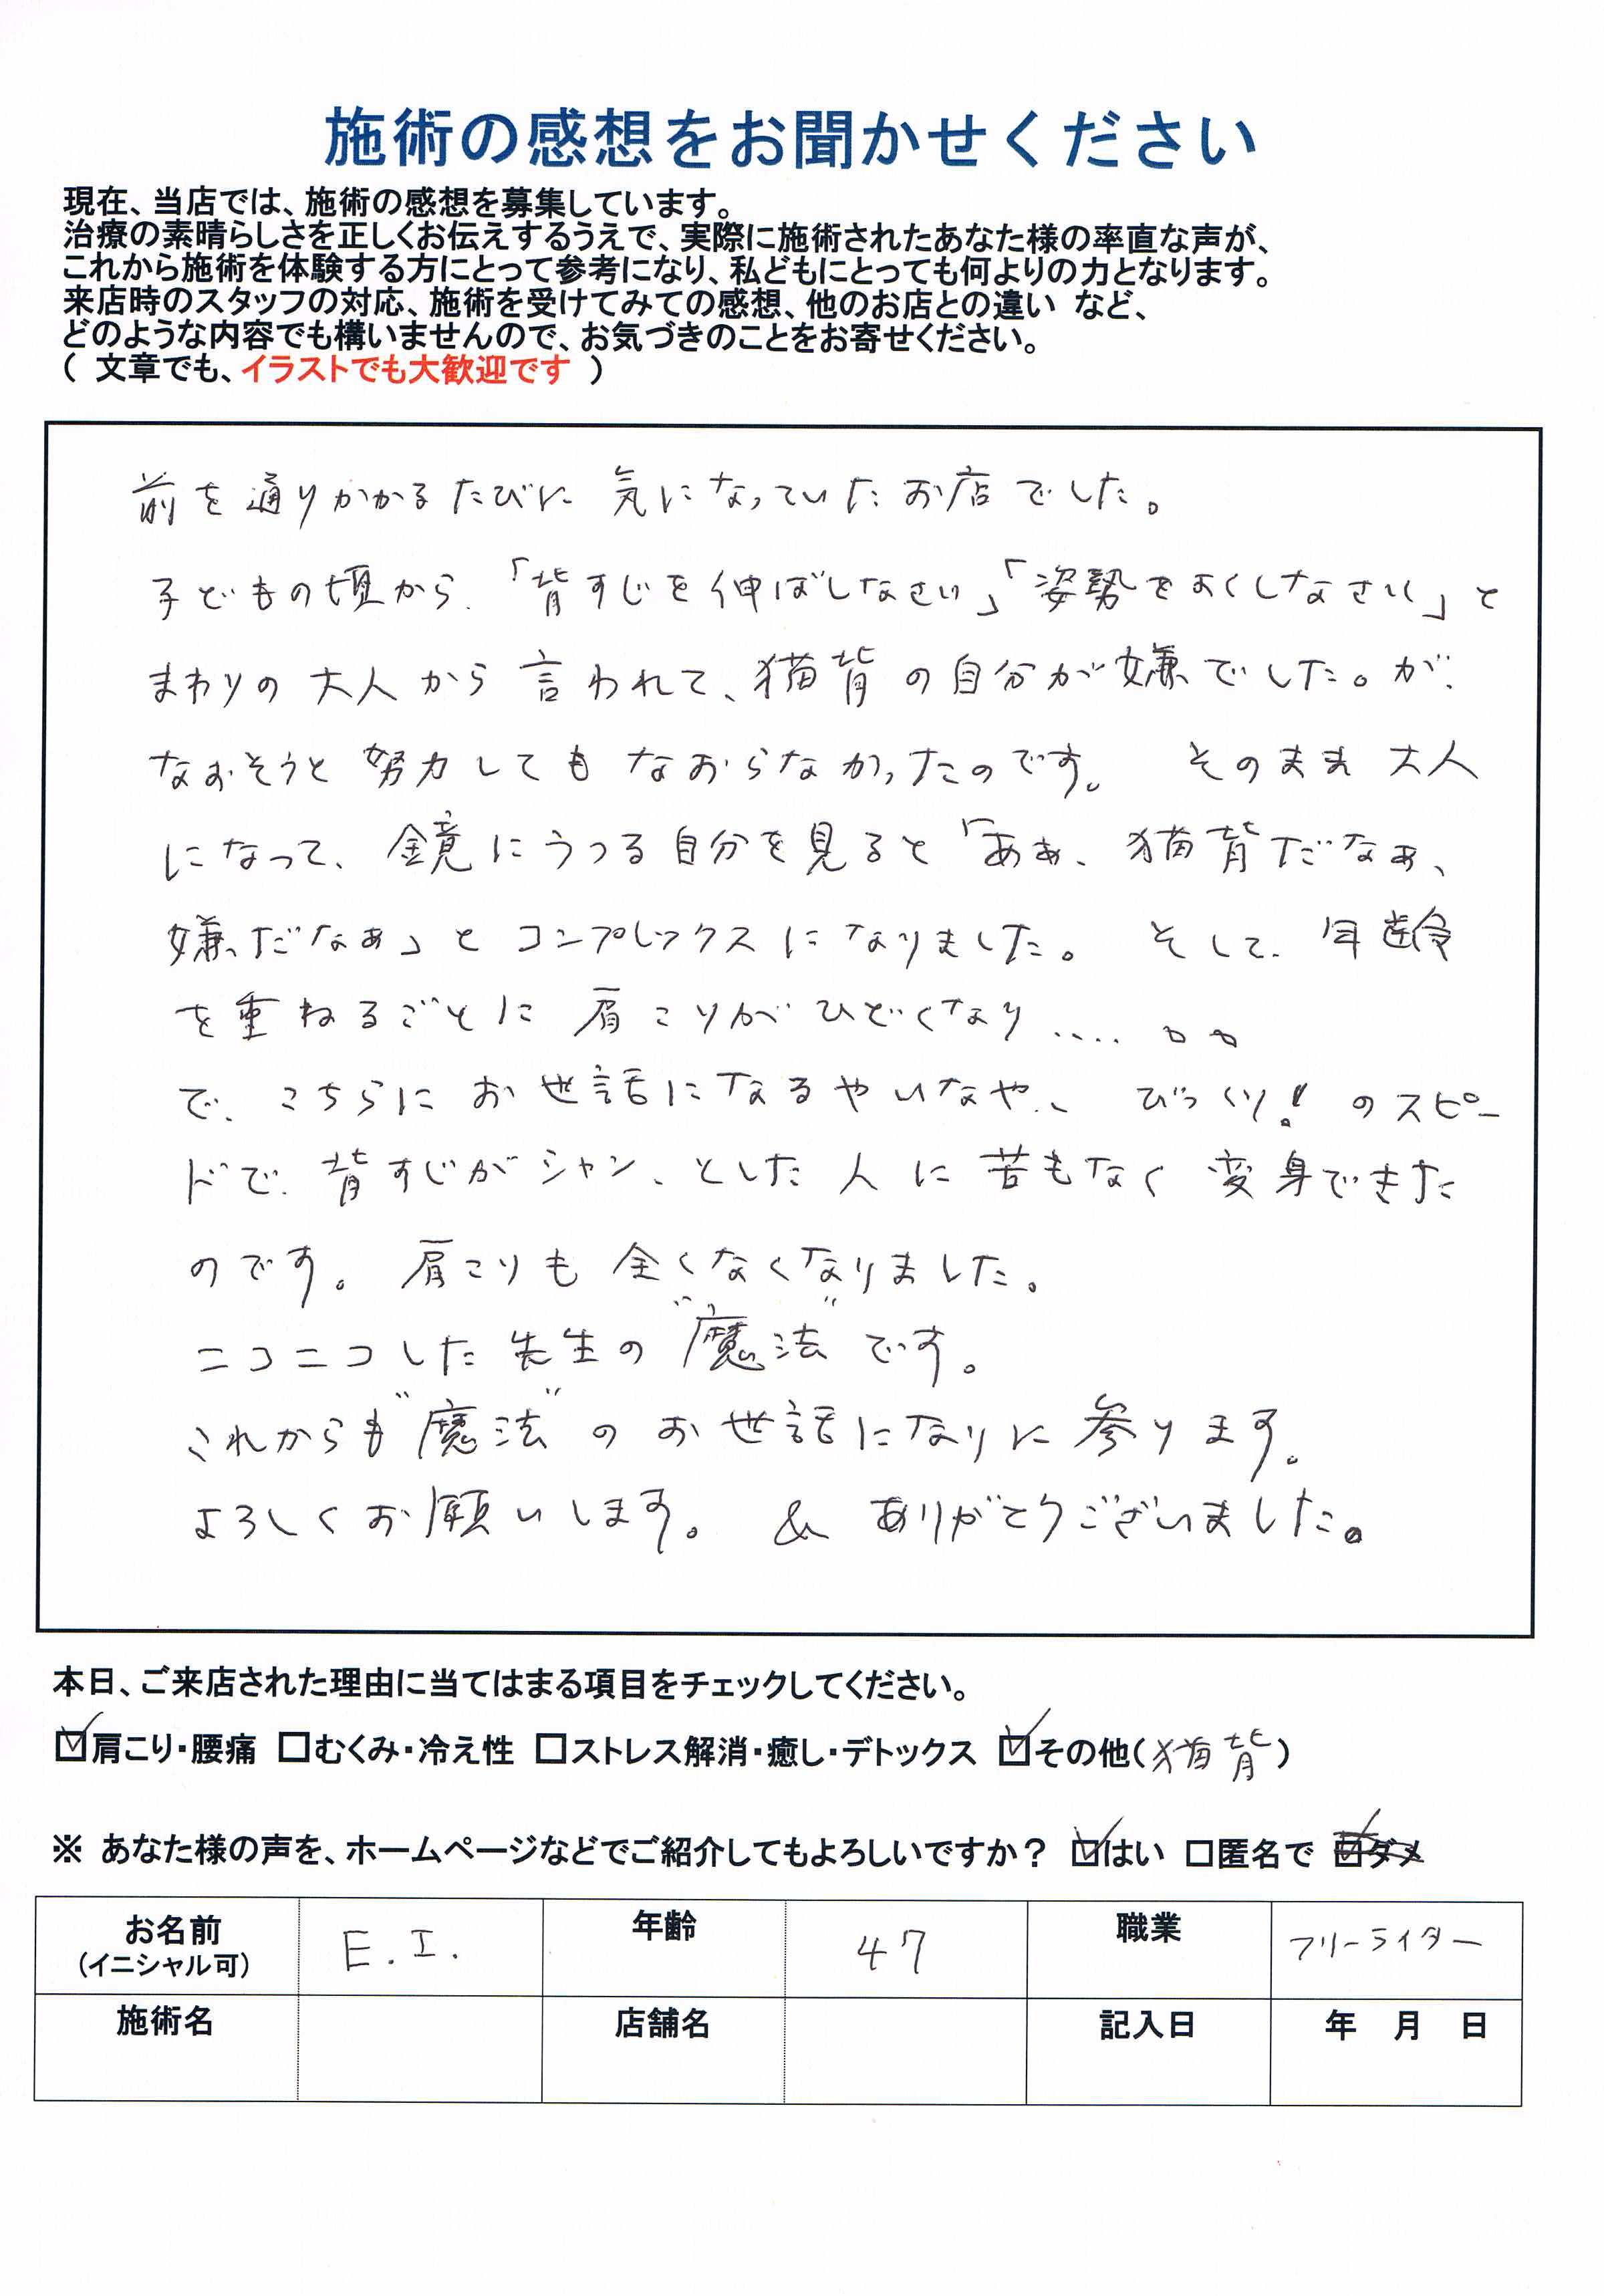 施術の感想をお聞かせください
現在、当店では、施術の感想を募集しています。
治療の素晴らしさを正しくお伝えするうえで、実際に施術されたあなた様の率直な声が、
これから施術を体験する方にとって参考になり、私どもにとっても何よりの力となります。
来店時のスタッフの対応、施術を受けてみての感想、他のお店との違い など、
どのような内容でも構いませんので、お気づきのことをお寄せください。
( 文章でも、イラストでも大歓迎です )
前を通りかかるたびに気になっていたお店でした。
子どもの頃から、「背すじを伸ばしなさい」「姿勢をよくしなさい」と
まわりの大人から言われて、猫背の自分が嫌でした。が、
なおそうと努力してもなおらなかったのです。 そのまま大人
になって、鏡にうつる自分を見ると「あぁ、猫背だなぁ、
嫌だなぁ」とコンプレックスになりました。 そして、年齢
を重ねるごとに肩こりがひどくなり....。。
で、こちらにお世話になるやいなや、びっくり!のスピー
ドで、背すじがシャン、とした人に苦もなく変身できた
のです。肩こりも全くなくなりました。
ニコニコした先生の"魔法"です。
これからも"魔法"のお世話になりに参ります。
よろしくお願いします。 & ありがとうございました。
本日、ご来店された理由に当てはまる項目をチェックしてください。
☑肩こり・腰痛 □むくみ・冷え性 □ストレス解消・癒し・デトックス ☑その他(猫背)
※ あなた様の声を、ホームページなどでご紹介してもよろしいですか? ☑はい □匿名で ☑ダメ
お名前 E.I. 年齢 47 職業 フリーライター
(イニシャル可)
施術名 店舗名 記入日 年 月 日